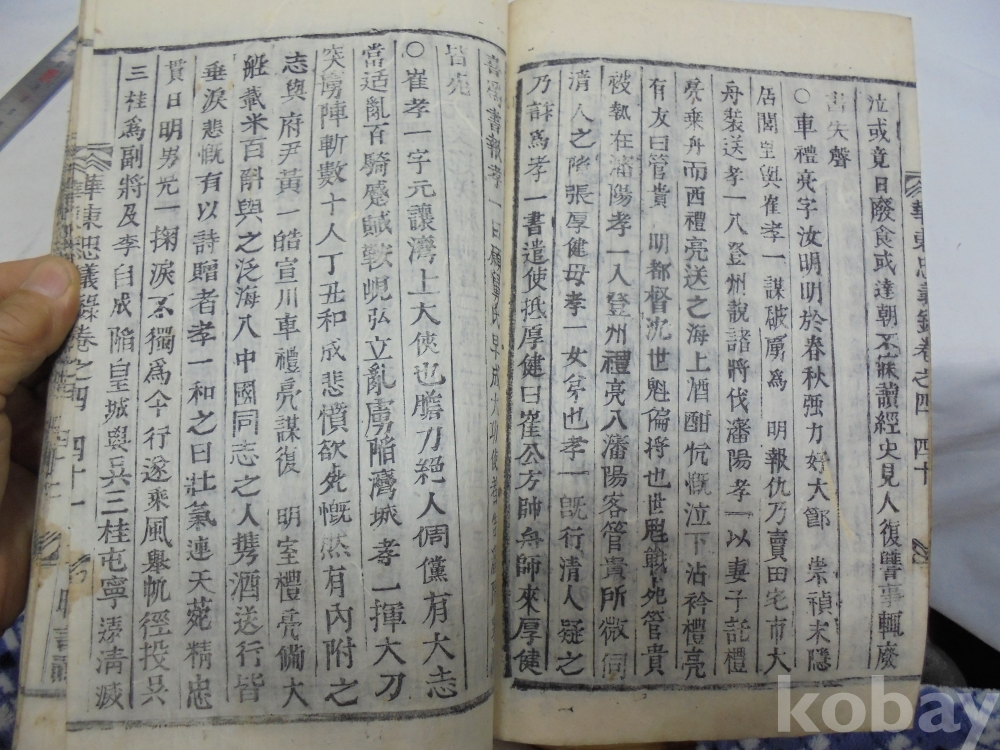 華東忠義錄卷之四 四十
泣或竟日廢食或達朝不寐讀經史見人復讐事輒廢
書失聲
○車禮亮字汝明明於春秋强力好大節 崇禎末隱
居閣望與崔孝一謀破虜爲 明報仇乃賣田宅市大
舟裝送孝一入登州說諸將伐瀋陽孝一以妻子託禮
亮乘舟而西禮亮送之海上酒酣忼慨泣下沾衿禮亮
有友曰管貴 明都督沈世魁偏將也世魁戰死管貴
被執在瀋陽孝一入登州禮亮入瀋陽客管貴所微伺
清人之隙張厚健母孝一女弟也孝一旣行清人疑之
乃詐爲孝一書遣使抵厚健曰崔公方帥舟師來厚健
喜爲書報孝一曰願舅氏早成大功使
皆死
○崔孝一字元讓灣上大俠也膽力絕人倜儻有大志
當适亂百騎感賊戰峴弘立亂虜陷灣城孝一揮大刀
突虜陣斬數十人丁丑和成悲憤欲死慨然有內附之
志與府尹黃一皓宣川車禮亮謀復 明室禮亮倘大
船載米百斛與之泛海入中國同志之人携酒送行皆
垂淚悲慨有以詩贈者孝一和之曰壯氣連天菀精忠
貫日明男兒一掬淚不獨爲今行遂乘風擧帆徑投吳
三桂爲副將及李自成陷皇城與吳三桂屯寧遠清滅
華東忠義錄卷之四 四十一
kobay